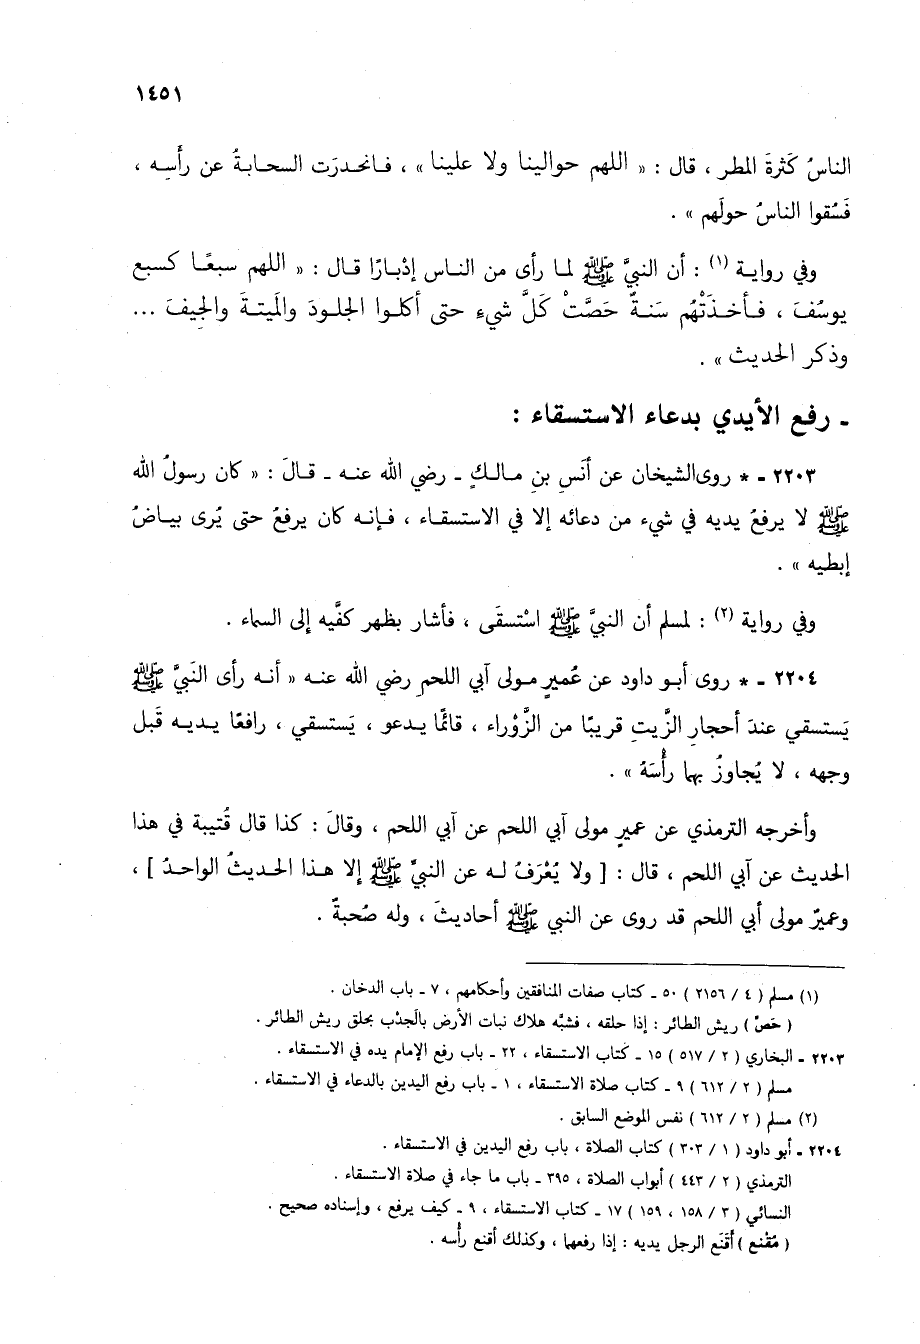 ١٤٥١
الناسُ كَثرةَ المطر ، قال : « اللهم حوالينا ولا علينا » ، فـانحـدرَت السحـابـةُ عن رأسِـه ،
فَسُقوا الناسُ حولَهم » .
وفي روايـة (١) : أن النبيَّ ﷺ لمـا رأى من النـاس إدْبـارًا قـال : « اللهم سبعًـا كسبع
يوسُفَ ، فـأخـذَتْهُم سَنـةٌ حَصَّتْ كلَّ شيءٍ حتى أكلـوا الجلـودَ والميتـةَ والجيفَ ...
وذكر الحديث » .
ـ رفع الأيدي بدعاء الاستسقاء :
٢٢٠٣ ـ * روى الشيخان عن أنَسِ بنِ مـالـكٍ ـ رضي الله عنـه ـ قـالَ : « كان رسولُ الله
ﷺ لا يرفعُ يديه في شيءٍ من دعائه إلا في الاستسقـاء ، فـإنـه كان يرفعُ حتى يُرى بيـاضُ
إبطيه » .
وفي رواية (٢) : لمسلم أن النبيَّ ﷺ اسْتسقَى ، فأشار بظهر كفَّيه إلى السماء .
٢٢٠٤ ـ * روى أبـو داود عن عُميرٍ مـولى آبي اللحم رضي الله عنـه « أنـه رأى النَبيَّ ﷺ
يَستسقي عندَ أحجارِ الزَّيتِ قريبًا من الزَّوْراء ، قائمًا يـدعو ، يَستسقي ، رافعًا يـديـه قِبَل
وجهه ، لا يُجاوزُ بهما رأْسَهُ » .
وأخرجه الترمذي عن عميرٍ مولى آبي اللحم عن آبي اللحم ، وقالَ : كذا قال قُتيبة في هذا
الحديث عن آبي اللحم ، قال : [ ولا يُعْرَفُ لـه عن النبيِّ ﷺ إلا هـذا الحـديثُ الواحـدُ ] ،
وعميرٌ مولى آبي اللحم قد روى عن النبي ﷺ أحاديثَ ، وله صُحبةٌ .
(١) مسلم ( ٤ / ٢١٥٦ ) ٥٠ ـ كتاب صفات المنافقين وأحكامهم ، ٧ ـ باب الدخان .
( حَصّ ) ريش الطائر : إذا حلقه ، فشبّه هلاك نبات الأرض بالجَدْب بحلق ريش الطائر .
٢٢٠٣ ـ البخاري ( ٢ / ٥١٧ ) ١٥ ـ كتاب الاستسقاء ، ٢٢ ـ باب رفع الإمام يده في الاستسقاء .
مسلم ( ٢ / ٦١٢ ) ٩ ـ كتاب صلاة الاستسقاء ، ١ ـ باب رفع اليدين بالدعاء في الاستسقاء .
(٢) مسلم ( ٢ / ٦١٢ ) نفس الموضع السابق .
٢٢٠٤ ـ أبو داود ( ١ / ٣٠٣ ) كتاب الصلاة ، باب رفع اليدين في الاستسقاء .
الترمذي ( ٢ / ٤٤٣ ) أبواب الصلاة ، ٣٩٥ ـ باب ما جاء في صلاة الاستسقاء .
النسائي ( ٣ / ١٥٨ ، ١٥٩ ) ١٧ ـ كتاب الاستسقاء ، ٩ ـ كيف يرفع ، وإسناده صحيح .
( مُقْنع ) أَقْنَع الرجل يديه : إذا رفعها ، وكذلك أقنع رأْسه .